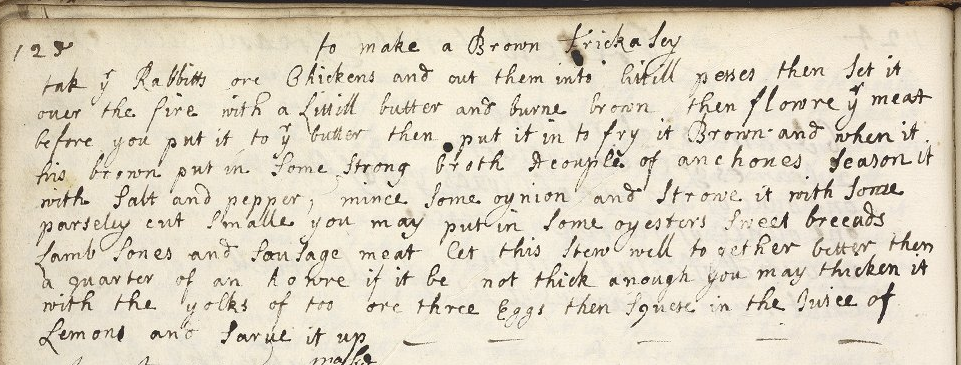 123 to make a Brown frickasey
tak yr Rabbitts ore Chickens and cut them into littill peses then set it
over the fire with a littill butter and burne brown then flowre yr meat
before you put it to yr butter then put it in to fry it Brown and when it
tis brown put in some strong broth A couple of anchoues season it
with salt and pepper, mince some oynion and strowe it with some
parseley cut smalle you may put in some oyesters sweet breeads
Lamb stones and sausage meat let this stew well to gether better then
a quarter of an howre if it be not thick anough you may thicken it
with the yolks of too ore three Eggs then squese in the Juice of
Lemons and sarue it up